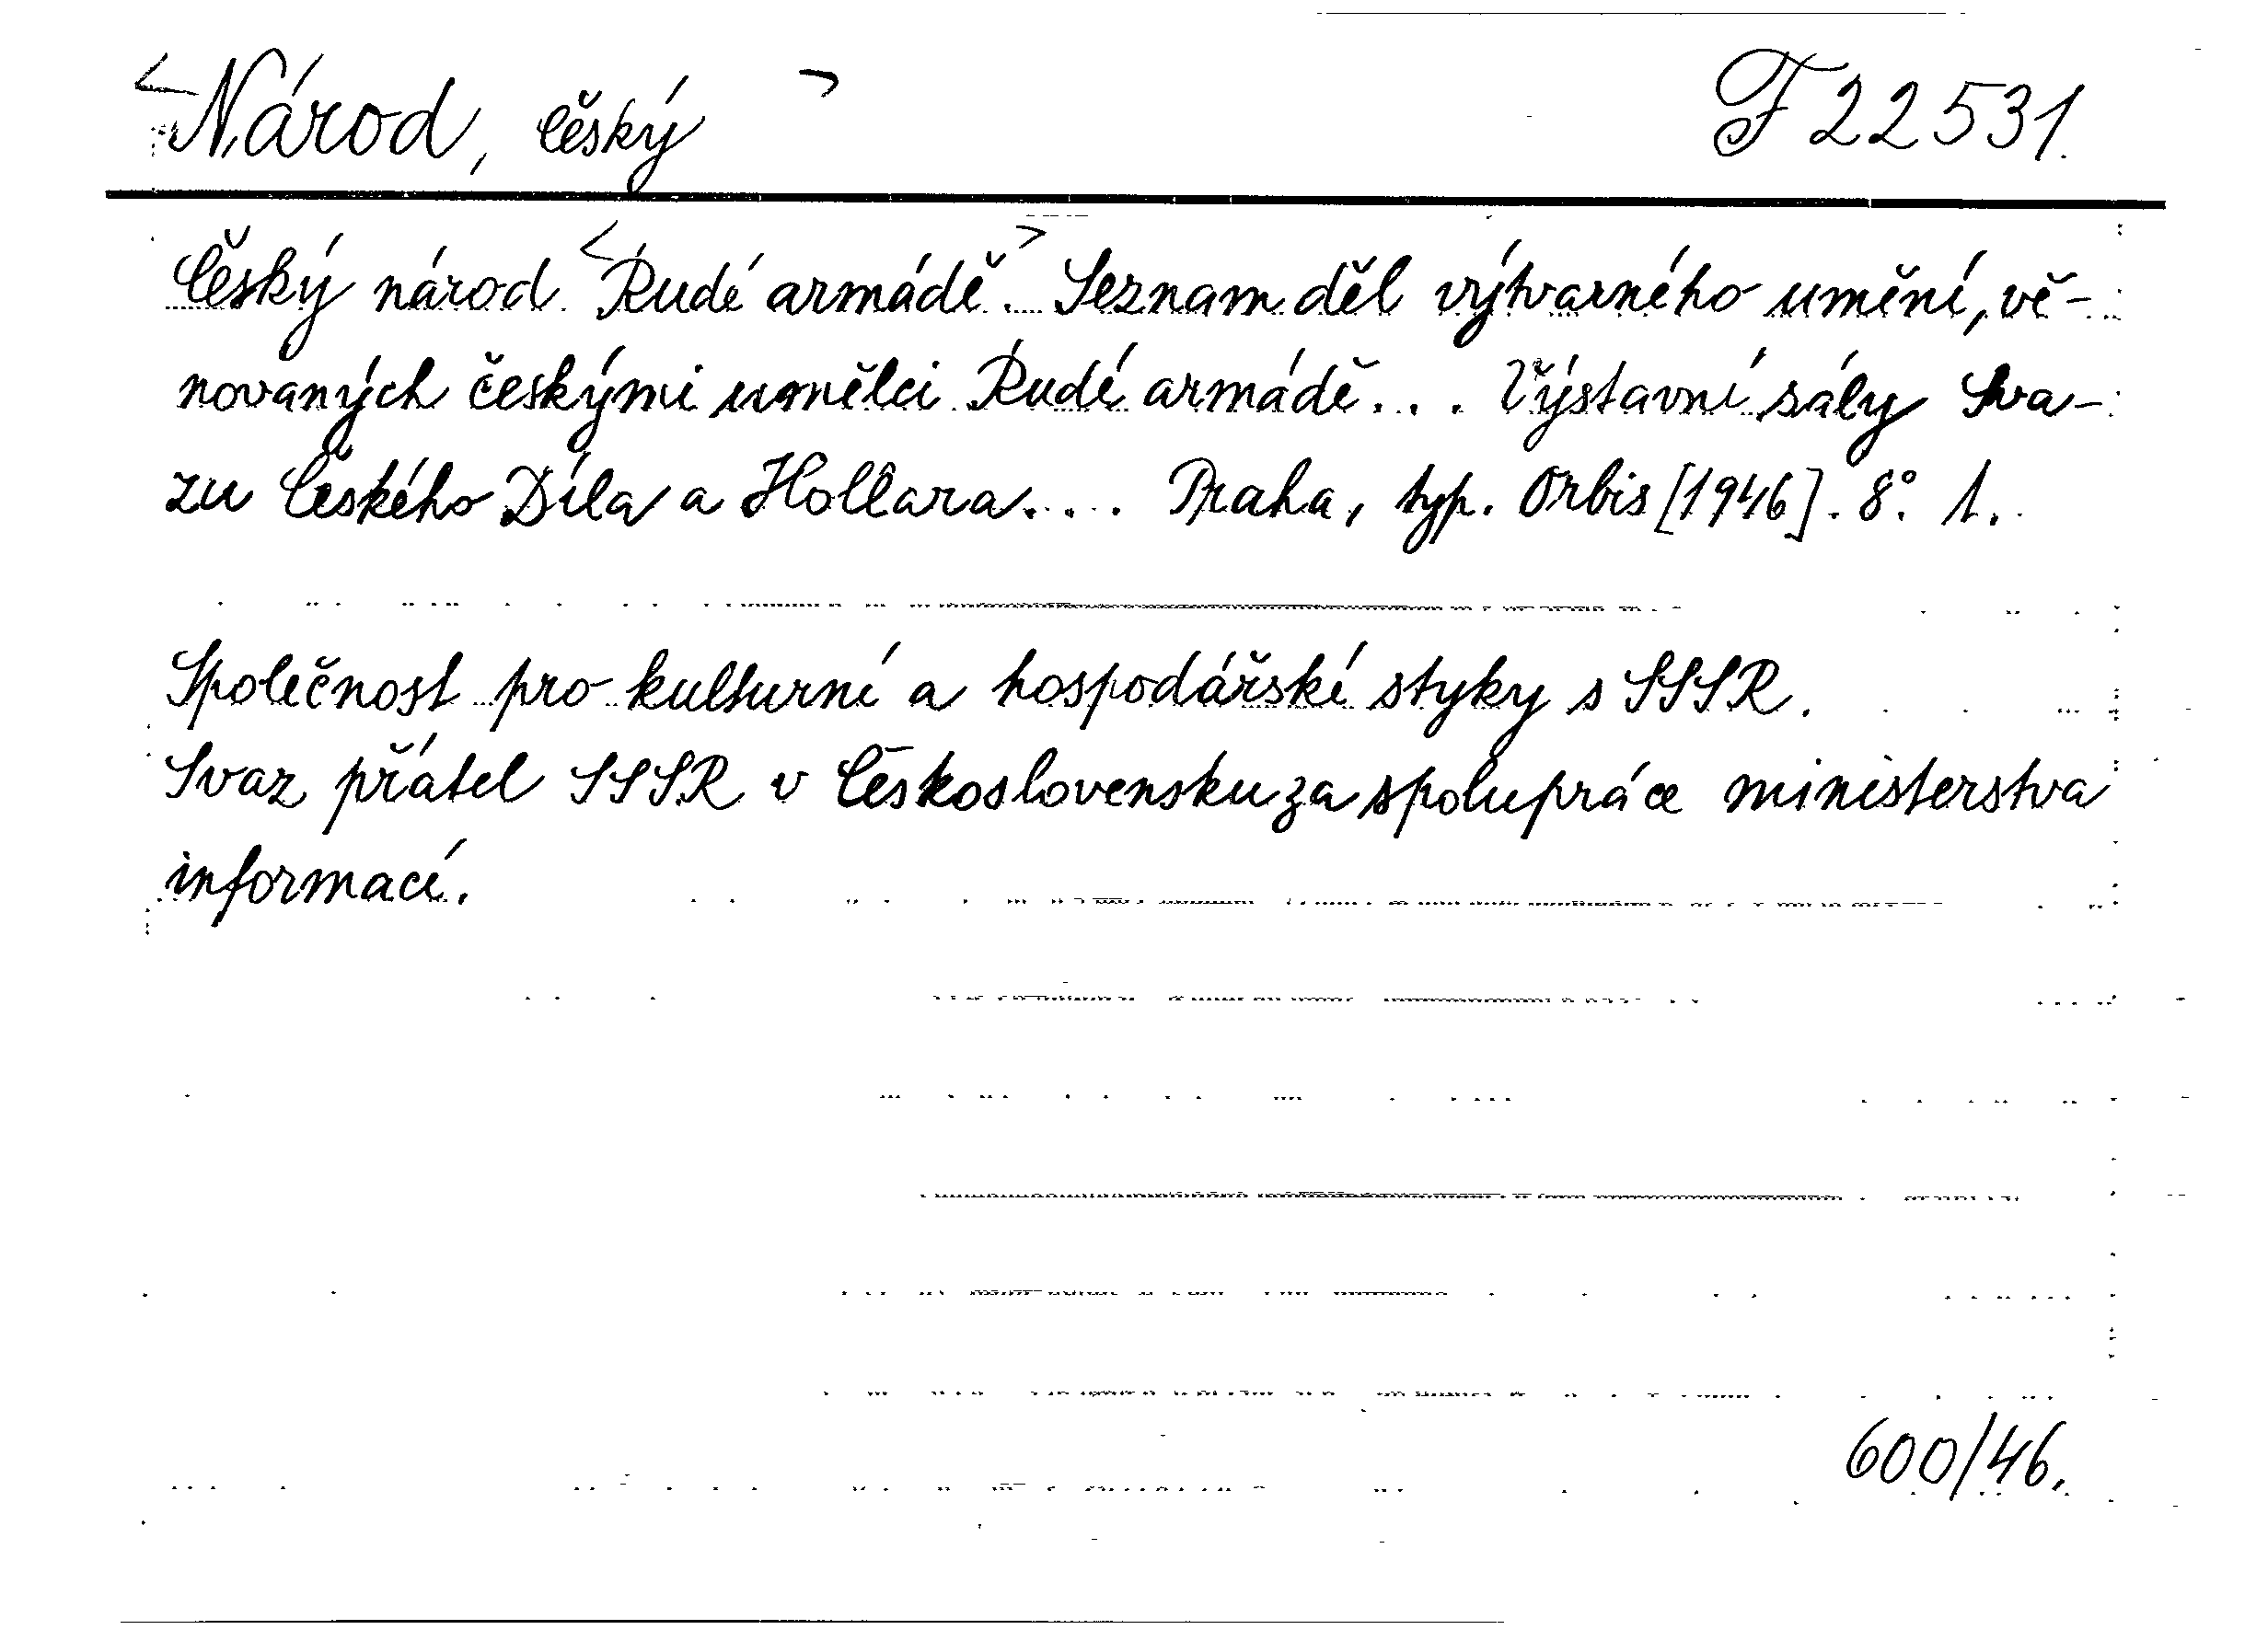 <Národ, český> F 22531.
Český národ <Rudé armádě>. Seznam děl výtvarného umění, vě-
novaných českými umělci Rudé armádě... Výstavní sály Sva-
zu Českého Díla a Hollara.... Praha, typ. Orbis [1946]. 8°. 1.
Společnost pro kulturní a hospodářské styky s SSSR.
Svaz přátel SSSR v Československu za spolupráce ministerstva
informací.
600/46.